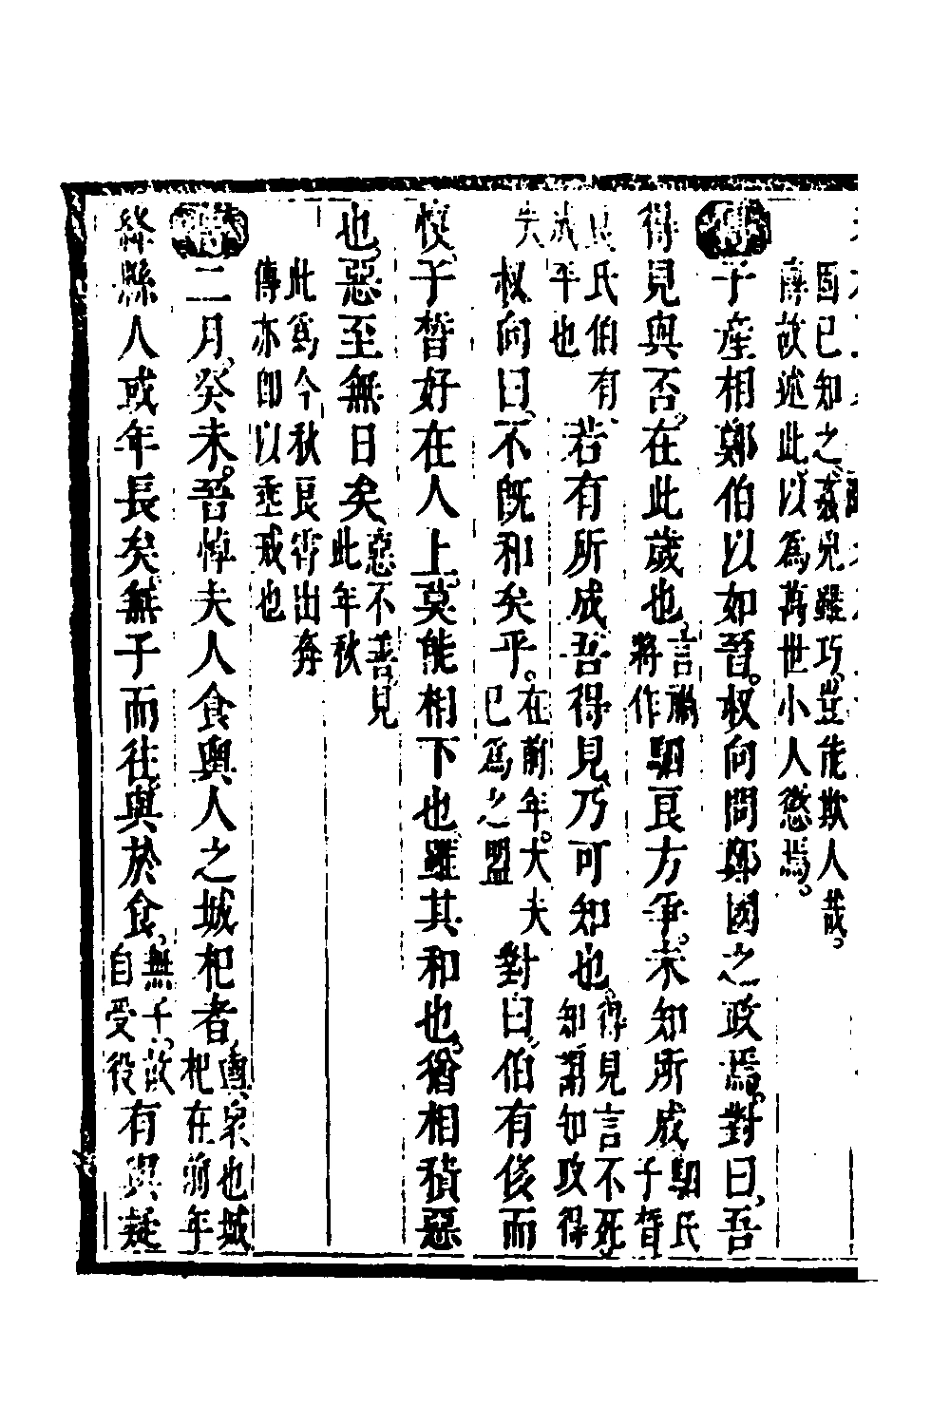 固已知之姦兇雖巧豈能欺人哉
傳故述此以為萬世小人懲焉
傳子產相鄭伯以如晉叔向問鄭國之政焉對曰吾
得見與否在此歲也言禍將作駟良方爭未知所成駟氏子晳
良氏伯有若有所成吾得見乃可知也得見言不死知謂知政得
失成平也
叔向曰不既和矣乎在前年大夫已為之盟對曰伯有侈而
愎子晳好在人上莫能相下也雖其和也猶相積惡
也惡至無日矣惡不善見此年秋
此為今秋良霄出奔
傳亦即以垂戒也
傳二月癸未晉悼夫人食輿人之城杞者輿眾也城杞在前年
絳縣人或年長矣無子而往與於食無子故自受役有與疑